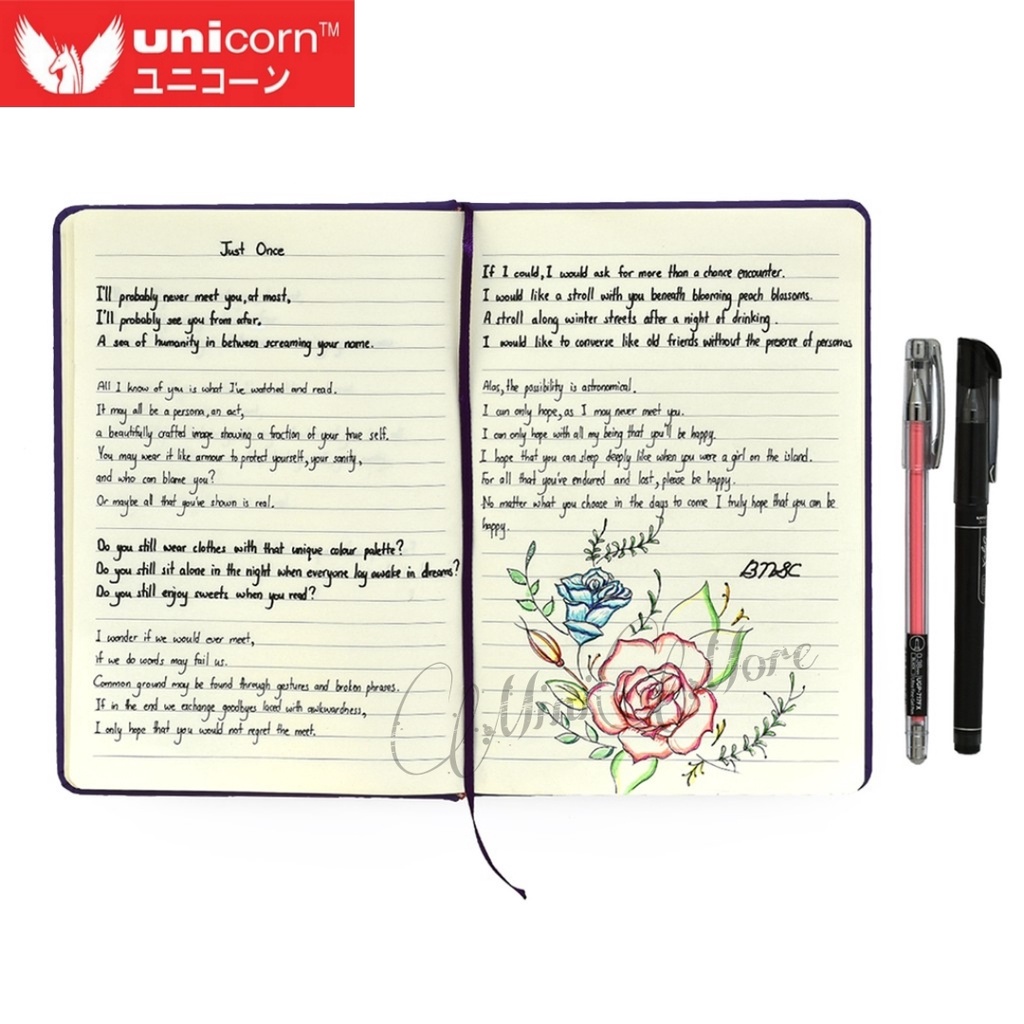 unicorn™
ユニコーン
Just Once
I'll probably never meet you, at most,
I'll probably see you from afar,
A sea of humanity in between screaming your name.
All I know of you is what I've watched and read.
It may all be a persona, an act,
a beautifully crafted image showing a fraction of your true self.
You may wear it like armour to protect yourself, your sanity,
and who can blame you?
Or maybe all that you've shown is real.
Do you still wear clothes with that unique colour palette?
Do you still sit alone in the night when everyone lay awake in dreams?
Do you still enjoy sweets when you read?
I wonder if we would ever meet,
if we do words may fail us.
Common ground may be found through gestures and broken phrases.
If in the end we exchange goodbyes laced with awkwardness,
I only hope that you would not regret the meet.
If I could, I would ask for more than a chance encounter.
I would like a stroll with you beneath blooming peach blossoms.
A stroll along winter streets after a night of drinking.
I would like to converse like old friends without the presence of personas
Alas, the possibility is astronomical.
I can only hope, as I may never meet you.
I can only hope with all my being that you'll be happy.
I hope that you can sleep deeply like when you were a girl on the island.
For all that you've endured and lost, please be happy.
No matter what you choose in the days to come I truly hope that you can be
happy.